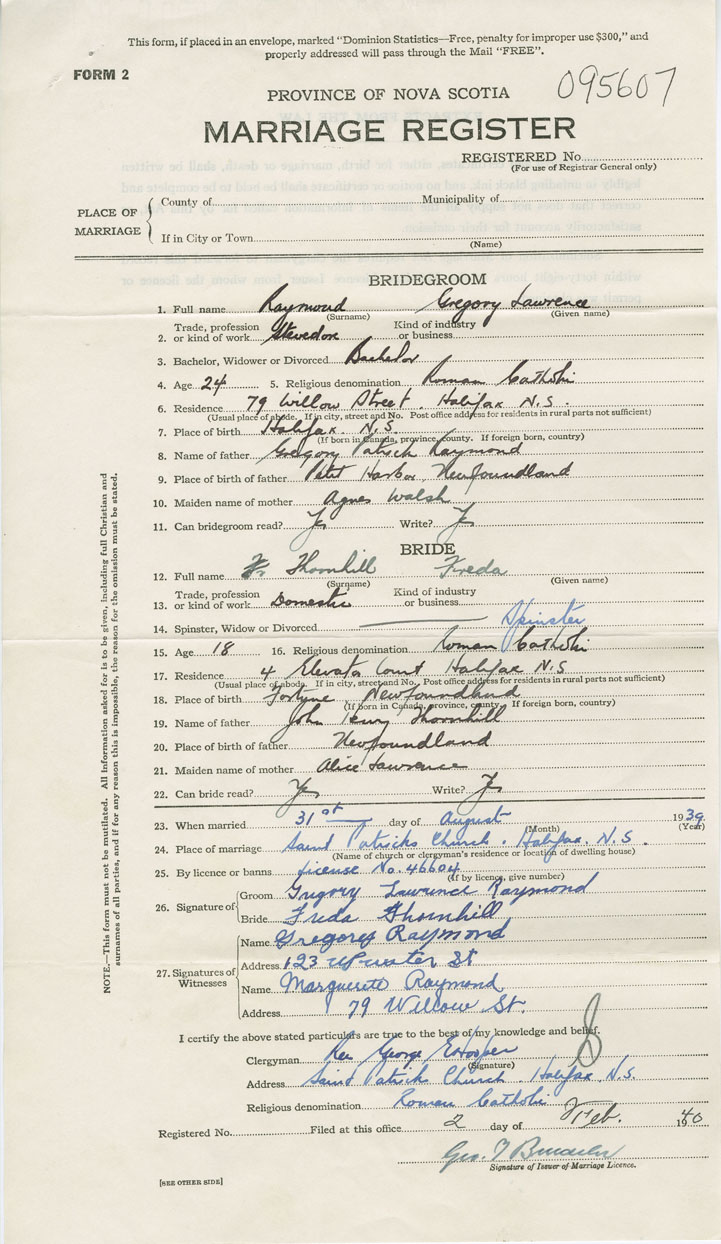 This form, if placed in an envelope, marked "Dominion Statistics—Free, penalty for improper use $300," and
properly addressed will pass through the Mail "FREE".
FORM 2
095607
PROVINCE OF NOVA SCOTIA
MARRIAGE REGISTER
REGISTERED No.
(For use of Registrar General only)
PLACE OF MARRIAGE
County of Municipality of
If in City or Town
(Name)
BRIDEGROOM
1. Full name Raymond Gregory Lawrence
(Surname) (Given name)
2. Trade, profession or kind of work Stevedore Kind of industry or business
3. Bachelor, Widower or Divorced Bachelor
4. Age 24 5. Religious denomination Roman Catholic
6. Residence 79 Willow Street, Halifax N.S.
(Usual place of abode. If in city, street and No. Post office address for residents in rural parts not sufficient)
7. Place of birth Halifax, N.S.
(If born in Canada, province, county. If foreign born, country)
8. Name of father Gregory Patrick Raymond
9. Place of birth of father Petit Harbor, Newfoundland
10. Maiden name of mother Agnes Walsh
11. Can bridegroom read? Yes Write? Yes
BRIDE
12. Full name Thornhill Freda
(Surname) (Given name)
13. Trade, profession or kind of work Domestic Kind of industry or business
14. Spinster, Widow or Divorced Spinster
15. Age 18 16. Religious denomination Roman Catholic
17. Residence 4 Elevator Court Halifax N.S
(Usual place of abode. If in city, street and No. Post office address for residents in rural parts not sufficient)
18. Place of birth Fortune Newfoundland
(If born in Canada, province, county. If foreign born, country)
19. Name of father John Henry Thornhill
20. Place of birth of father Newfoundland
21. Maiden name of mother Alice Lawrence
22. Can bride read? Yes Write? Yes
23. When married 31st day of August 1939
(Month) (Year)
24. Place of marriage Saint Patricks Church, Halifax, N.S.
(Name of church or clergyman's residence or location of dwelling house)
25. By licence or banns License No. 46604
(If by licence, give number)
26. Signature of
Groom Gregory Lawrence Raymond
Bride Freda Thornhill
27. Signatures of Witnesses
Name Gregory Raymond
Address 123 St
Name Marguerite Raymond
Address 79 Willow St.
I certify the above stated particulars are true to the best of my knowledge and belief.
Clergyman Rev George E Hooper
(Signature)
Address Saint Patrick Church Halifax, N.S.
Religious denomination Roman Catholic
Registered No. Filed at this office 2 day of Feb. 1940
Geo.
Signature of Issuer of Marriage Licence.
[SEE OTHER SIDE]
NOTE.—This form must not be mutilated. All information asked for is to be given, including full Christian and
surnames of all parties, and if for any reason this is impossible, the reason for the omission must be stated.